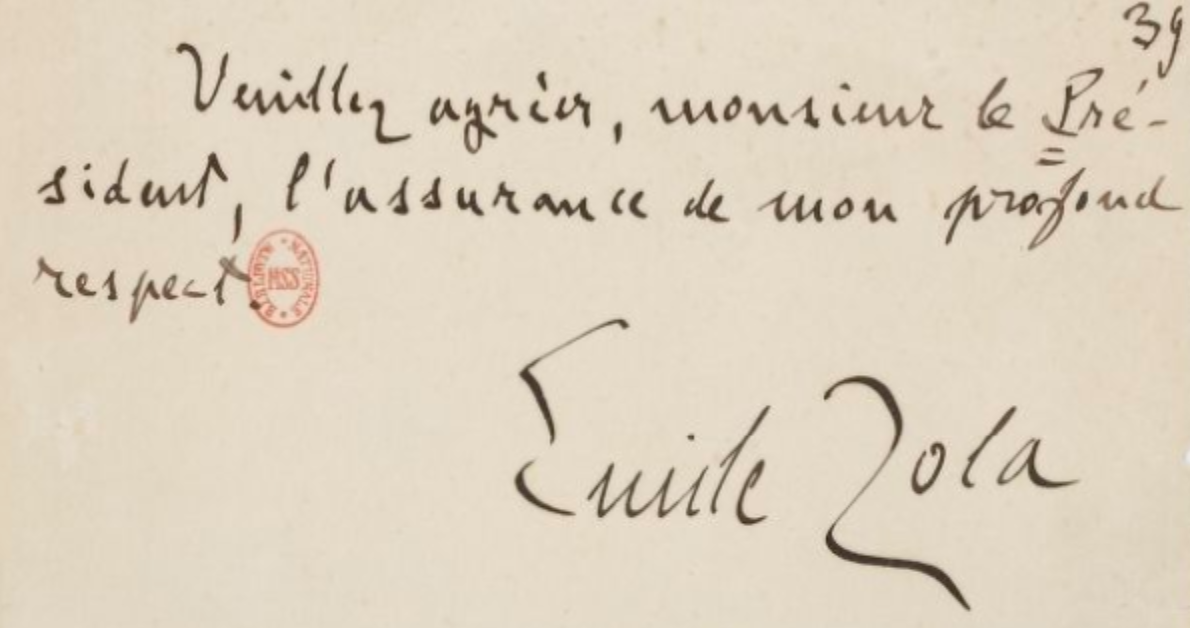 39
Veuillez agréer, monsieur le Pré-
sident, l'assurance de mon profond
respect.
BIBLIOTH. NATIONALE
MSS
Emile Zola